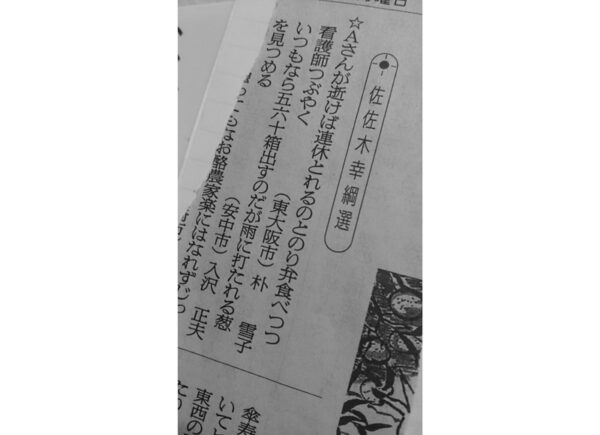 曜日
佐佐木幸綱選
☆Aさんが逝けば連休とれるのとのり弁食べつつ
看護師つぶやく
(東大阪市) 朴 雪子
いつもなら五六十箱出すのだが雨に打たれる葱
を見つめる
(安中市) 入沢 正夫
もはお酪農家楽にはなれずじっ
傘寿
いてし
東西の
たり